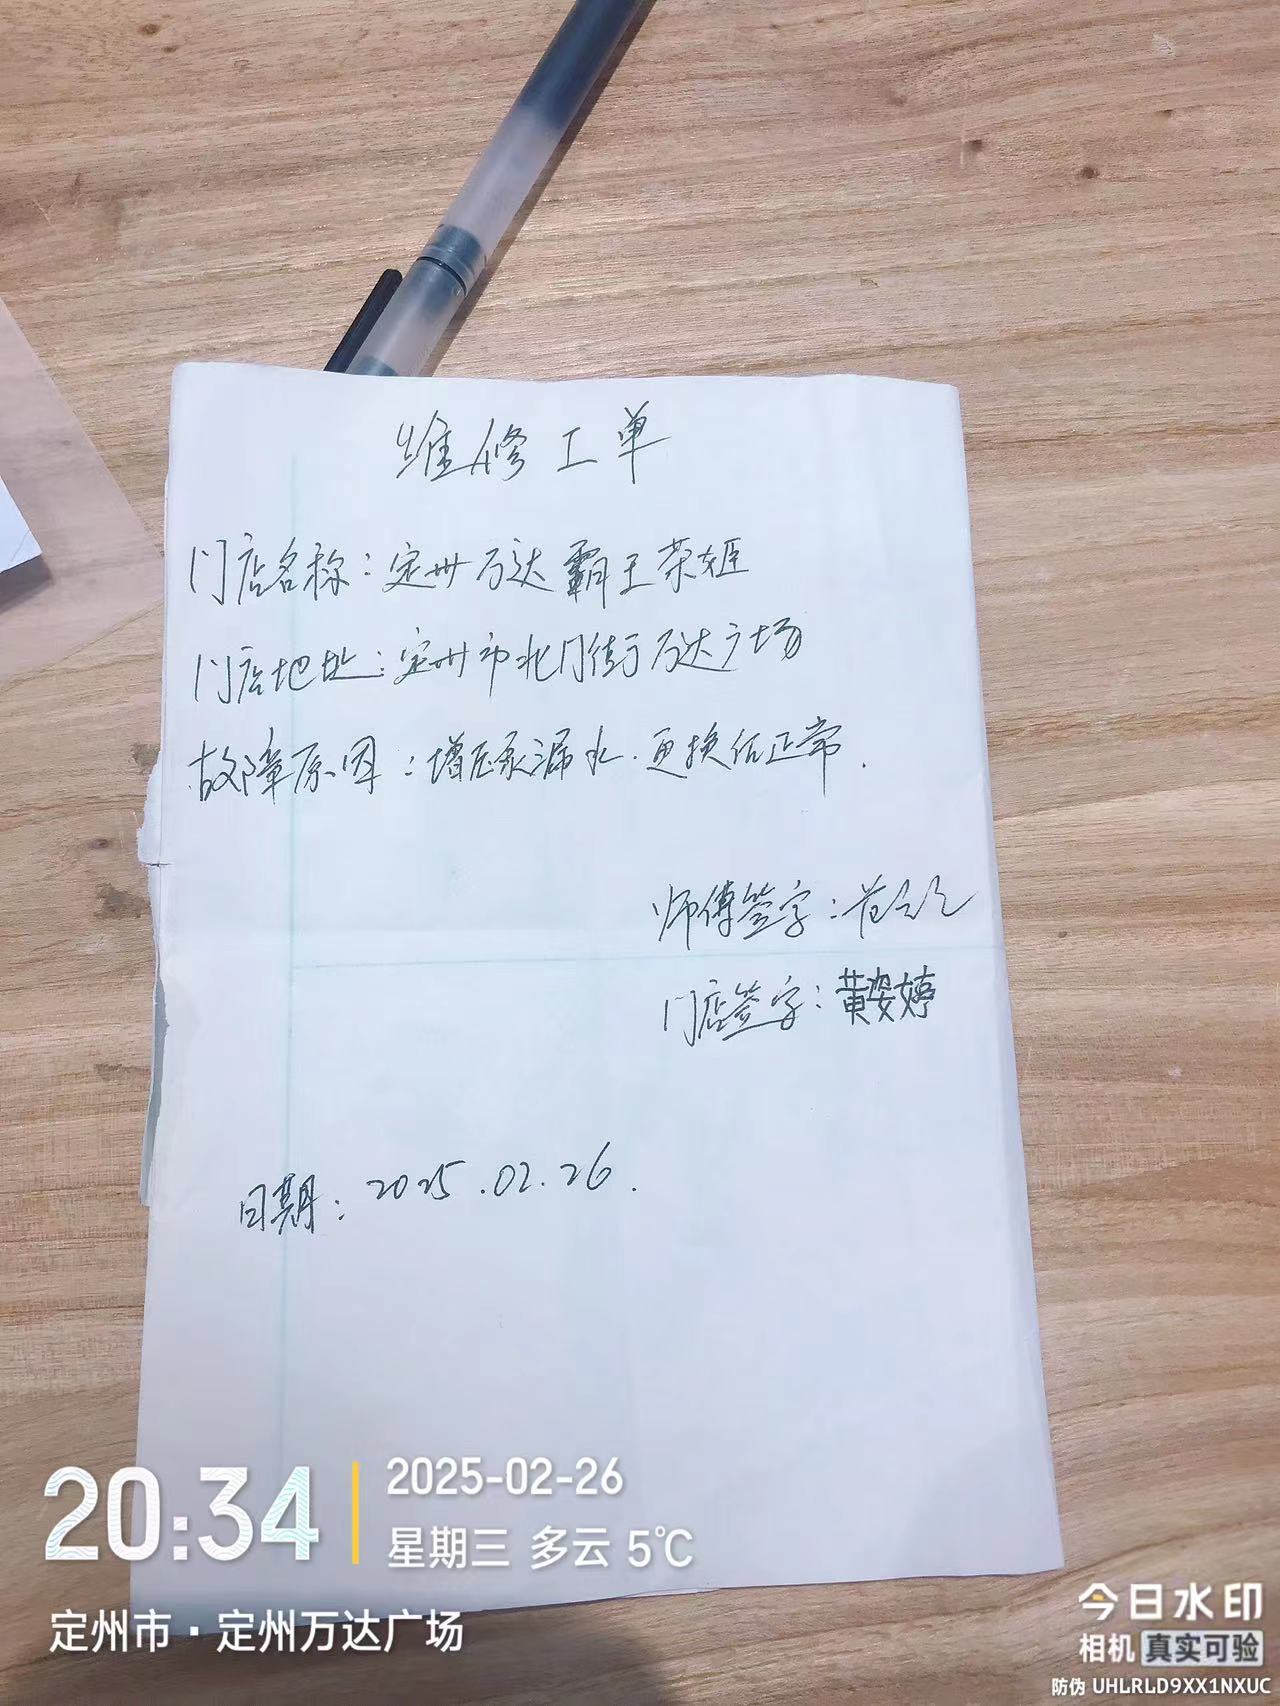 维修工单
门店名称：定州万达霸王茶姬
门店地址：定州市北门街万达广场
故障原因：增压泵漏水.更换后正常.
师傅签字：
门店签字：黄姿婷
日期：2025.02.26.
20:34
2025-02-26
星期三 多云 5℃
定州市·定州万达广场
今日水印
相机 真实可验
防伪 UHLRLD9XX1NXUC